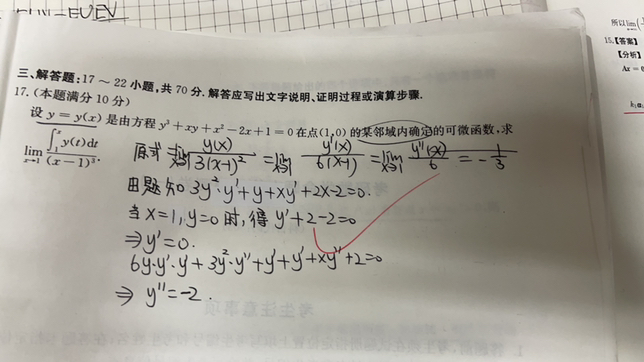 所以lim
15.【答案】
【分析】
Ax=0
三、解答题:17～22小题,共70分.解答应写出文字说明、证明过程或演算步骤.
17.(本题满分10分)
设 y=y(x) 是由方程 y³+xy+x²-2x+1=0 在点(1,0)的某邻域内确定的可微函数,求
lim_{x→1} ∫_1^x y(t)dt / (x-1)³.
原式=lim_{x→1} y(x)/3(x-1)² = lim_{x→1} y'(x)/6(x-1) = lim_{x→1} y''(x)/6 = -1/3
由题知 3y²·y'+y+xy'+2x-2=0.
当x=1,y=0时,得 y'+2-2=0
⇒y'=0.
6y·y'·y'+3y²·y''+y'+y'+xy''+2=0
⇒ y''=-2.